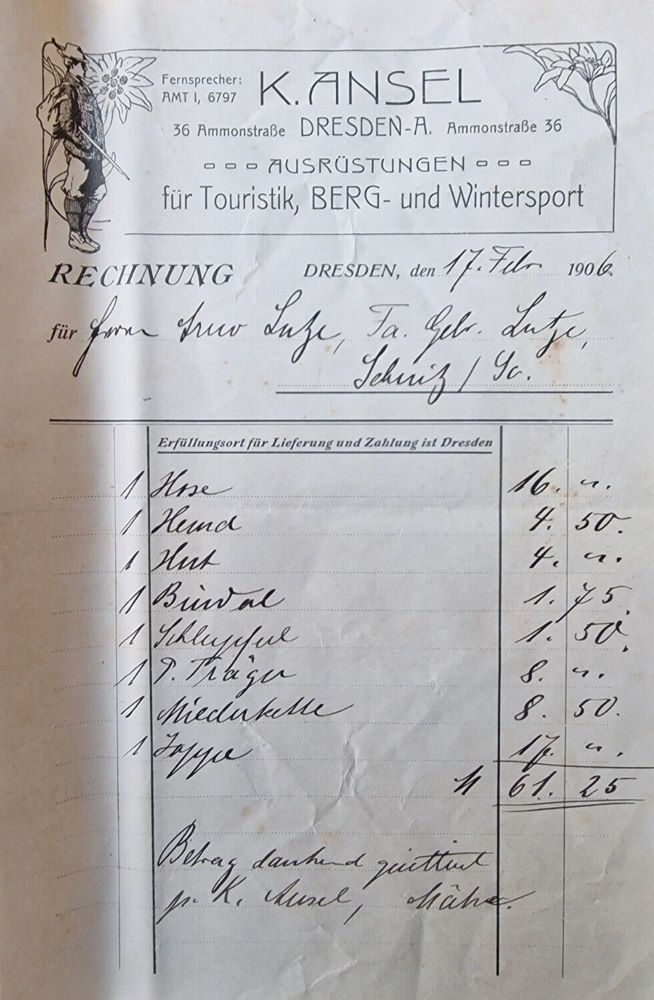 Fernsprecher:
AMT I, 6797
K. ANSEL
36 Ammonstraße DRESDEN-A. Ammonstraße 36
AUSRÜSTUNGEN
für Touristik, BERG- und Wintersport
RECHNUNG DRESDEN, den 17. Febr. 1906.
für Herrn Arno Lutze, Fa. Gebr. Lutze,
Sebnitz / Sa.
Erfüllungsort für Lieferung und Zahlung ist Dresden
1 Hose 16. ".
1 Hemd 4. 50.
1 Hut 4. ".
1 1. 75.
1 1. 50.
1 P. Träger 8. ".
1 Miederkette 8. 50.
1 Joppe 17. ".
M 61. 25
Betrag dankend quittiert
p. K. Ansel,